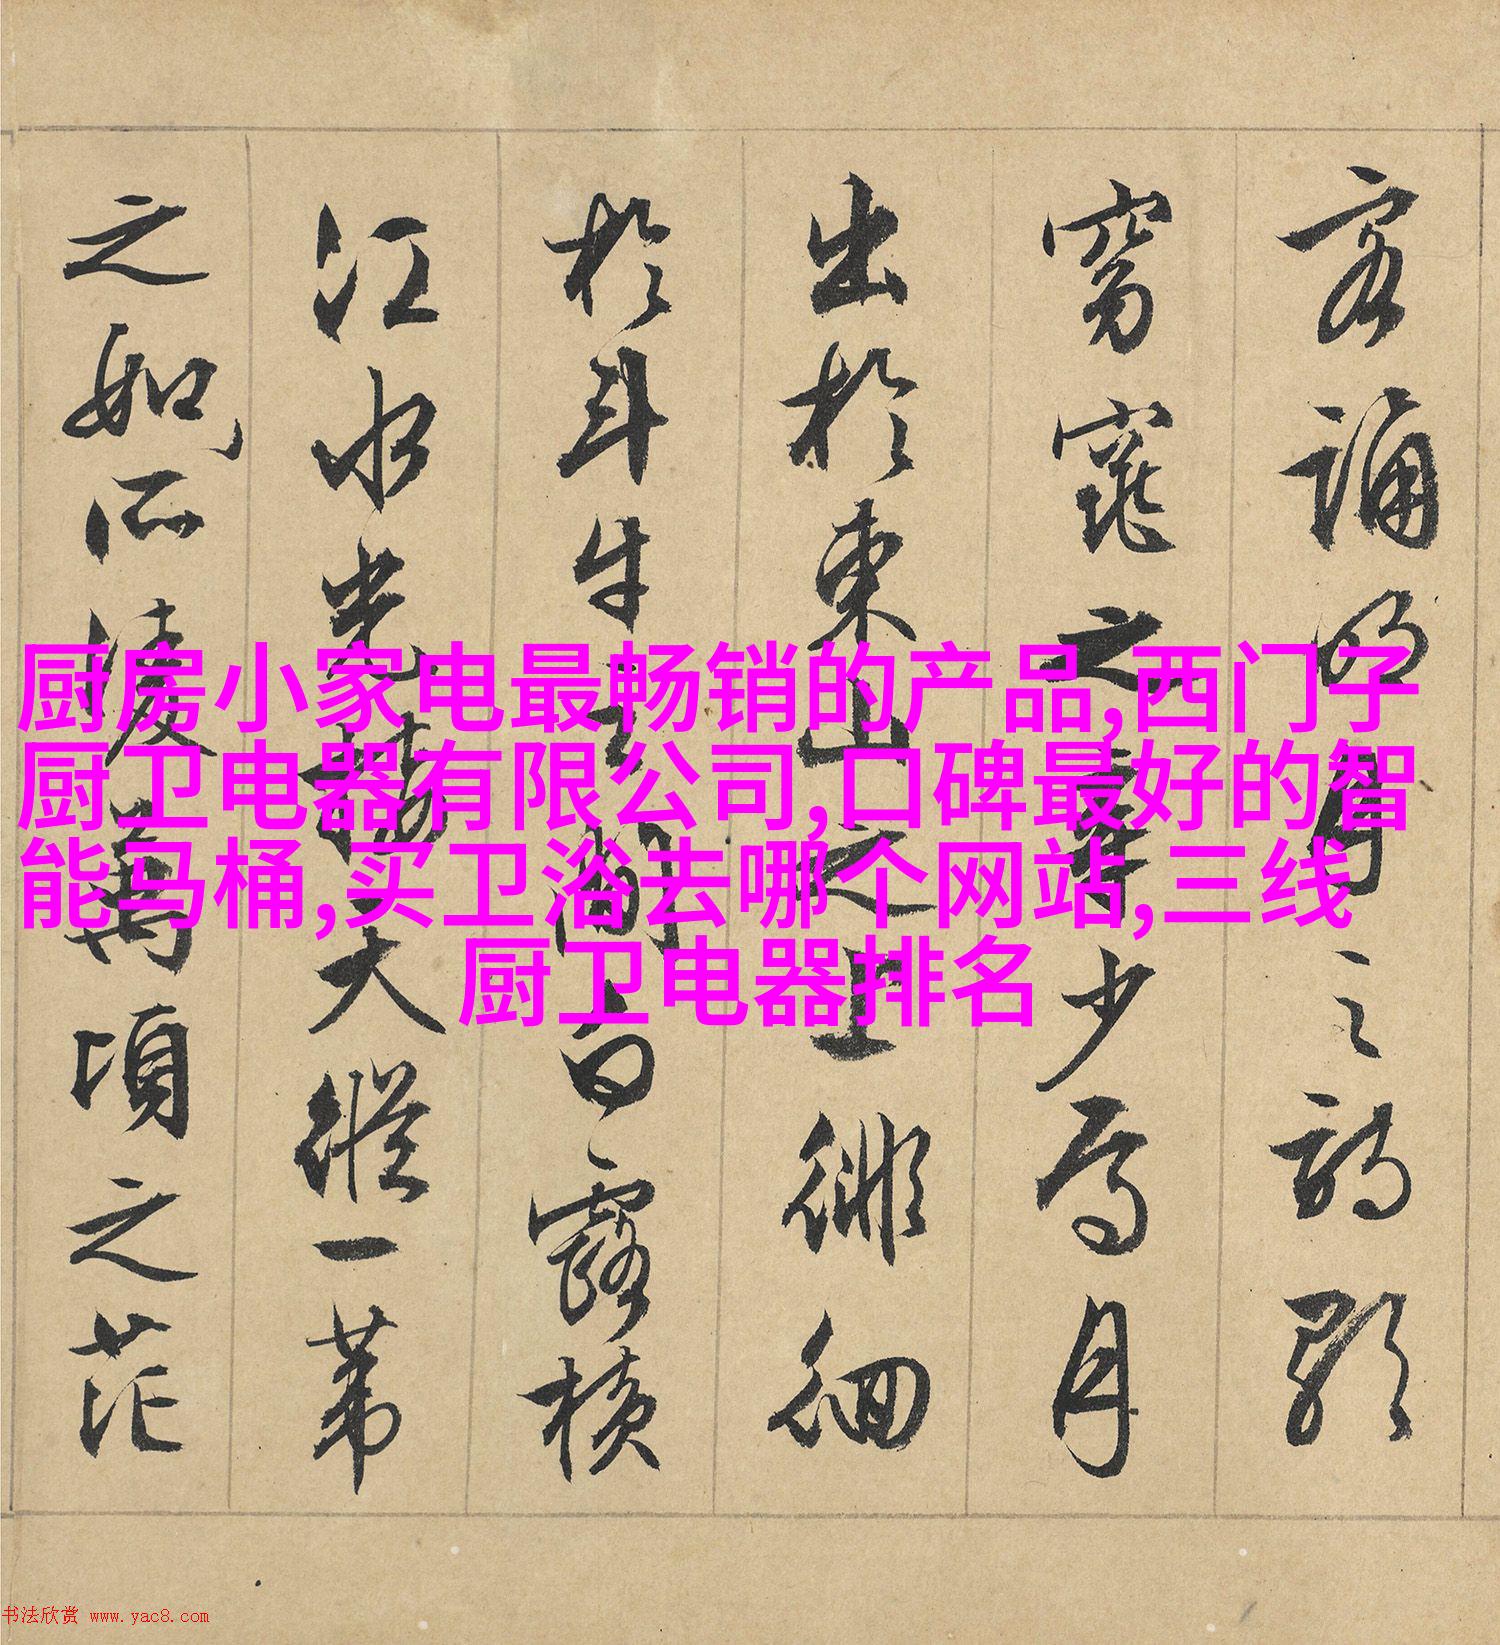 客誦明月之詩歌
窈窕之章少焉月
出於東山之上徘徊
於斗牛之間白露橫
江水光接天縱一葦
之如所淩萬頃之茫
厨房小家电最畅销的产品,西门子
厨卫电器有限公司,口碑最好的智
能马桶,买卫浴去哪个网站,三线
厨卫电器排名
书法欣赏 www.yac8.com